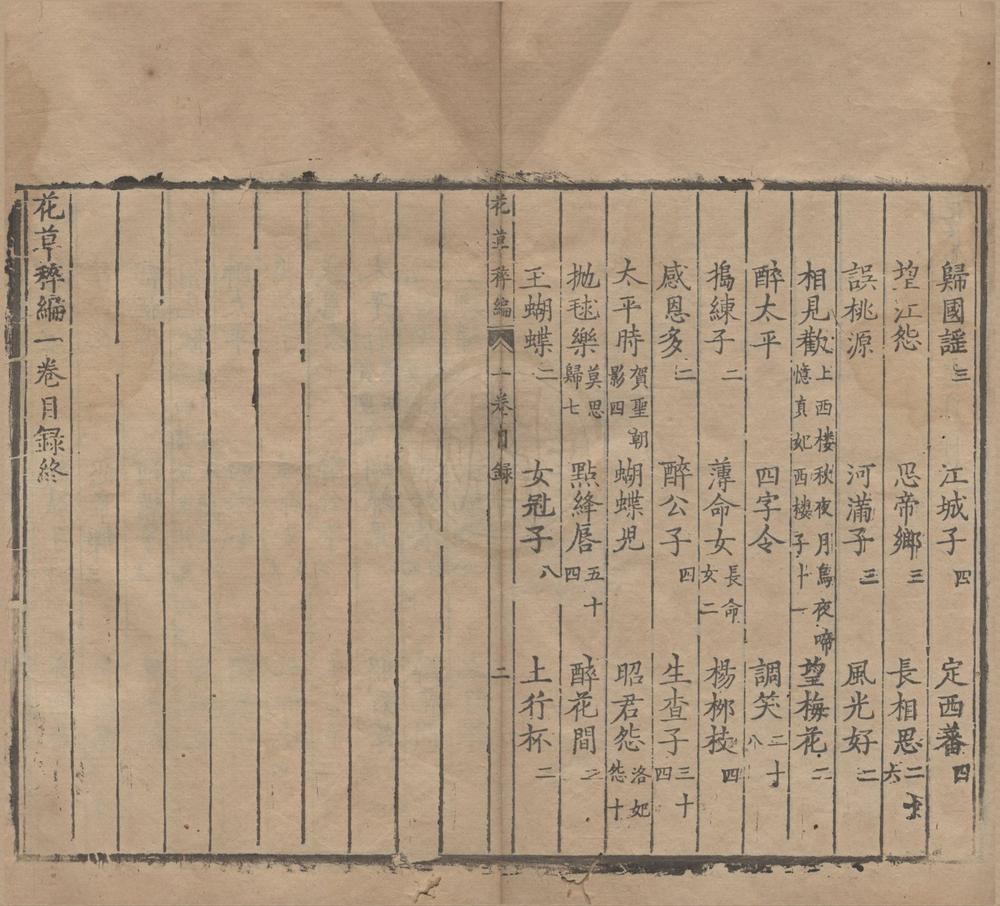 歸國謡三 江城子四 定西蕃四
望江怨 思帝鄉三 長相思二十六
誤桃源 河滿子三 風光好二
相見歡上西楼秋夜月烏夜啼憶真妃西樓子十一 望梅花二
醉太平 四字令 調笑二十八
搗練子二 薄命女長命女二 楊柳枝四
感恩多二 醉公子四 生查子三十四
太平時賀聖朝影四 蝴蝶児 昭君怨洛妃怨十
拋毬樂莫思歸七 點絳唇五十四 醉花間二
玉蝴蝶二 女冠子八 土行杯二
花草稡編 一卷目録 二
花草稡編一卷目録終